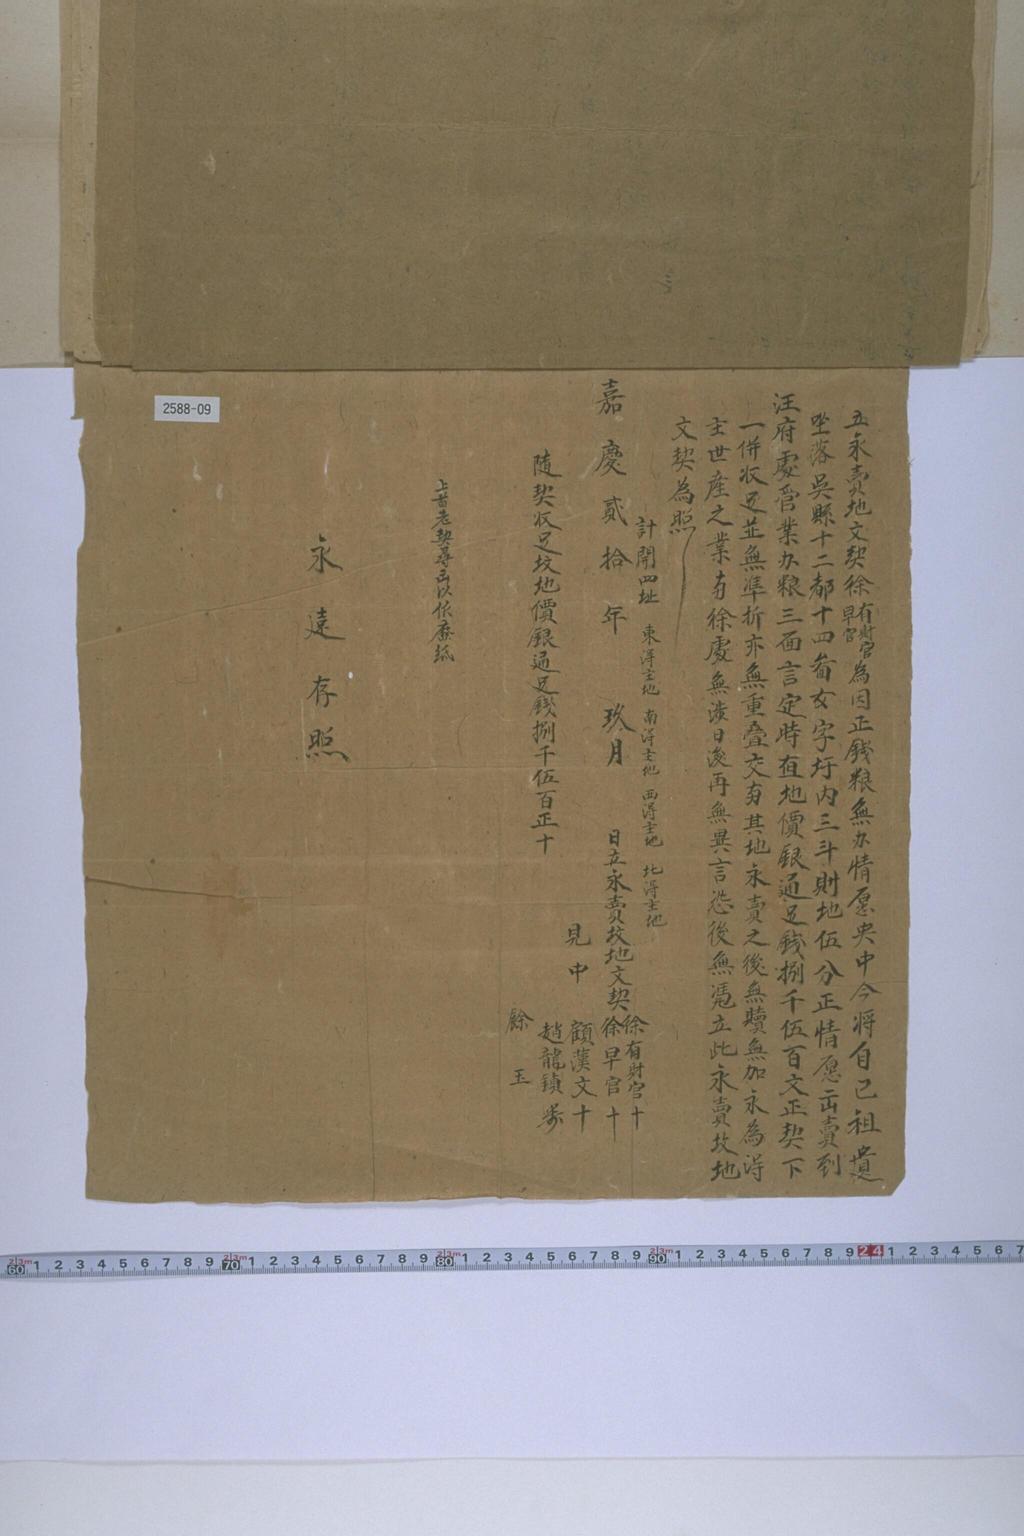 立永賣地文契徐有財官早官為因正錢粮無办情愿央中今将自己祖遺
坐落吳縣十二都十四啚玄字圩内三斗則地伍分正情愿出賣到
汪府處管業办粮三面言定時值地價銀通足錢捌千伍百文正契下
一併收足並無準折亦無重疊交易其地永賣之後無贖無加永為得
主世産之業与徐處無涉日後再無異言恐後無凴立此永賣坟地
文契為照
計開四址 東得主地 南得主地 西得主地 北得主地
嘉慶貳拾年 玖月 日立永賣坟地文契徐有財官十
徐早官十
見中 顧漢文十
趙龍鎮
餘玉
隨契收足坟地價銀通足錢捌千伍百正十
上首老契尋出以依廢紙
永遠存照
2588-09